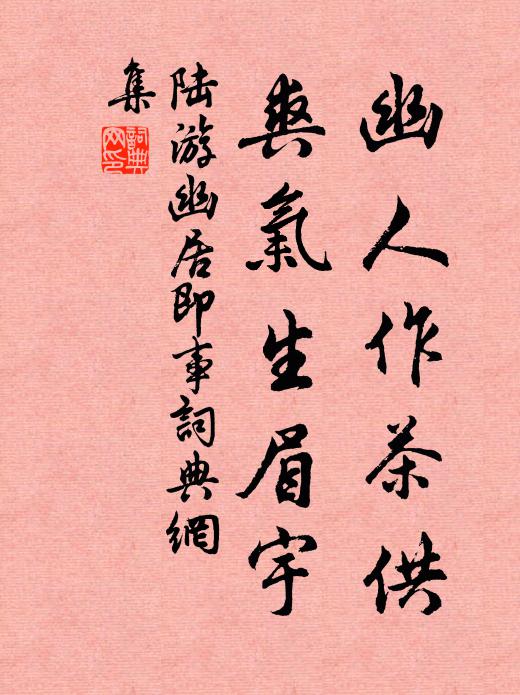 幽人作茶供
爽氣生眉宇
陸游幽居即事詞典網
集
詞典網印